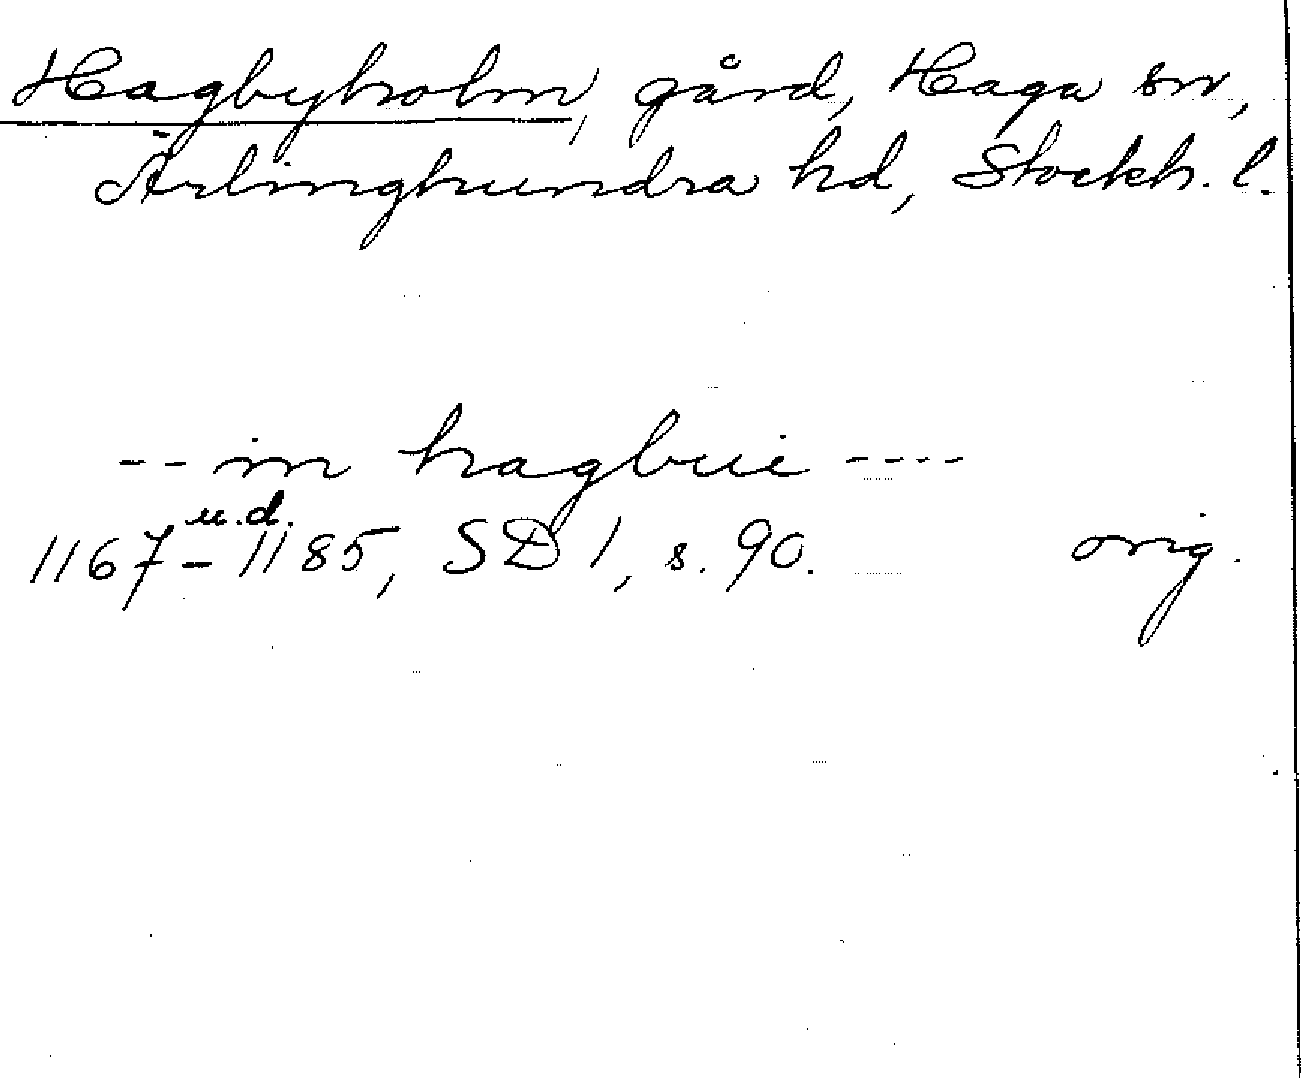 Hagbyholm, gård, Haga sn,
Ärlinghundra hd, Stockh. l.
-- in hagbui ----
u.d.
1167-1185, SD 1, s. 90. orig.